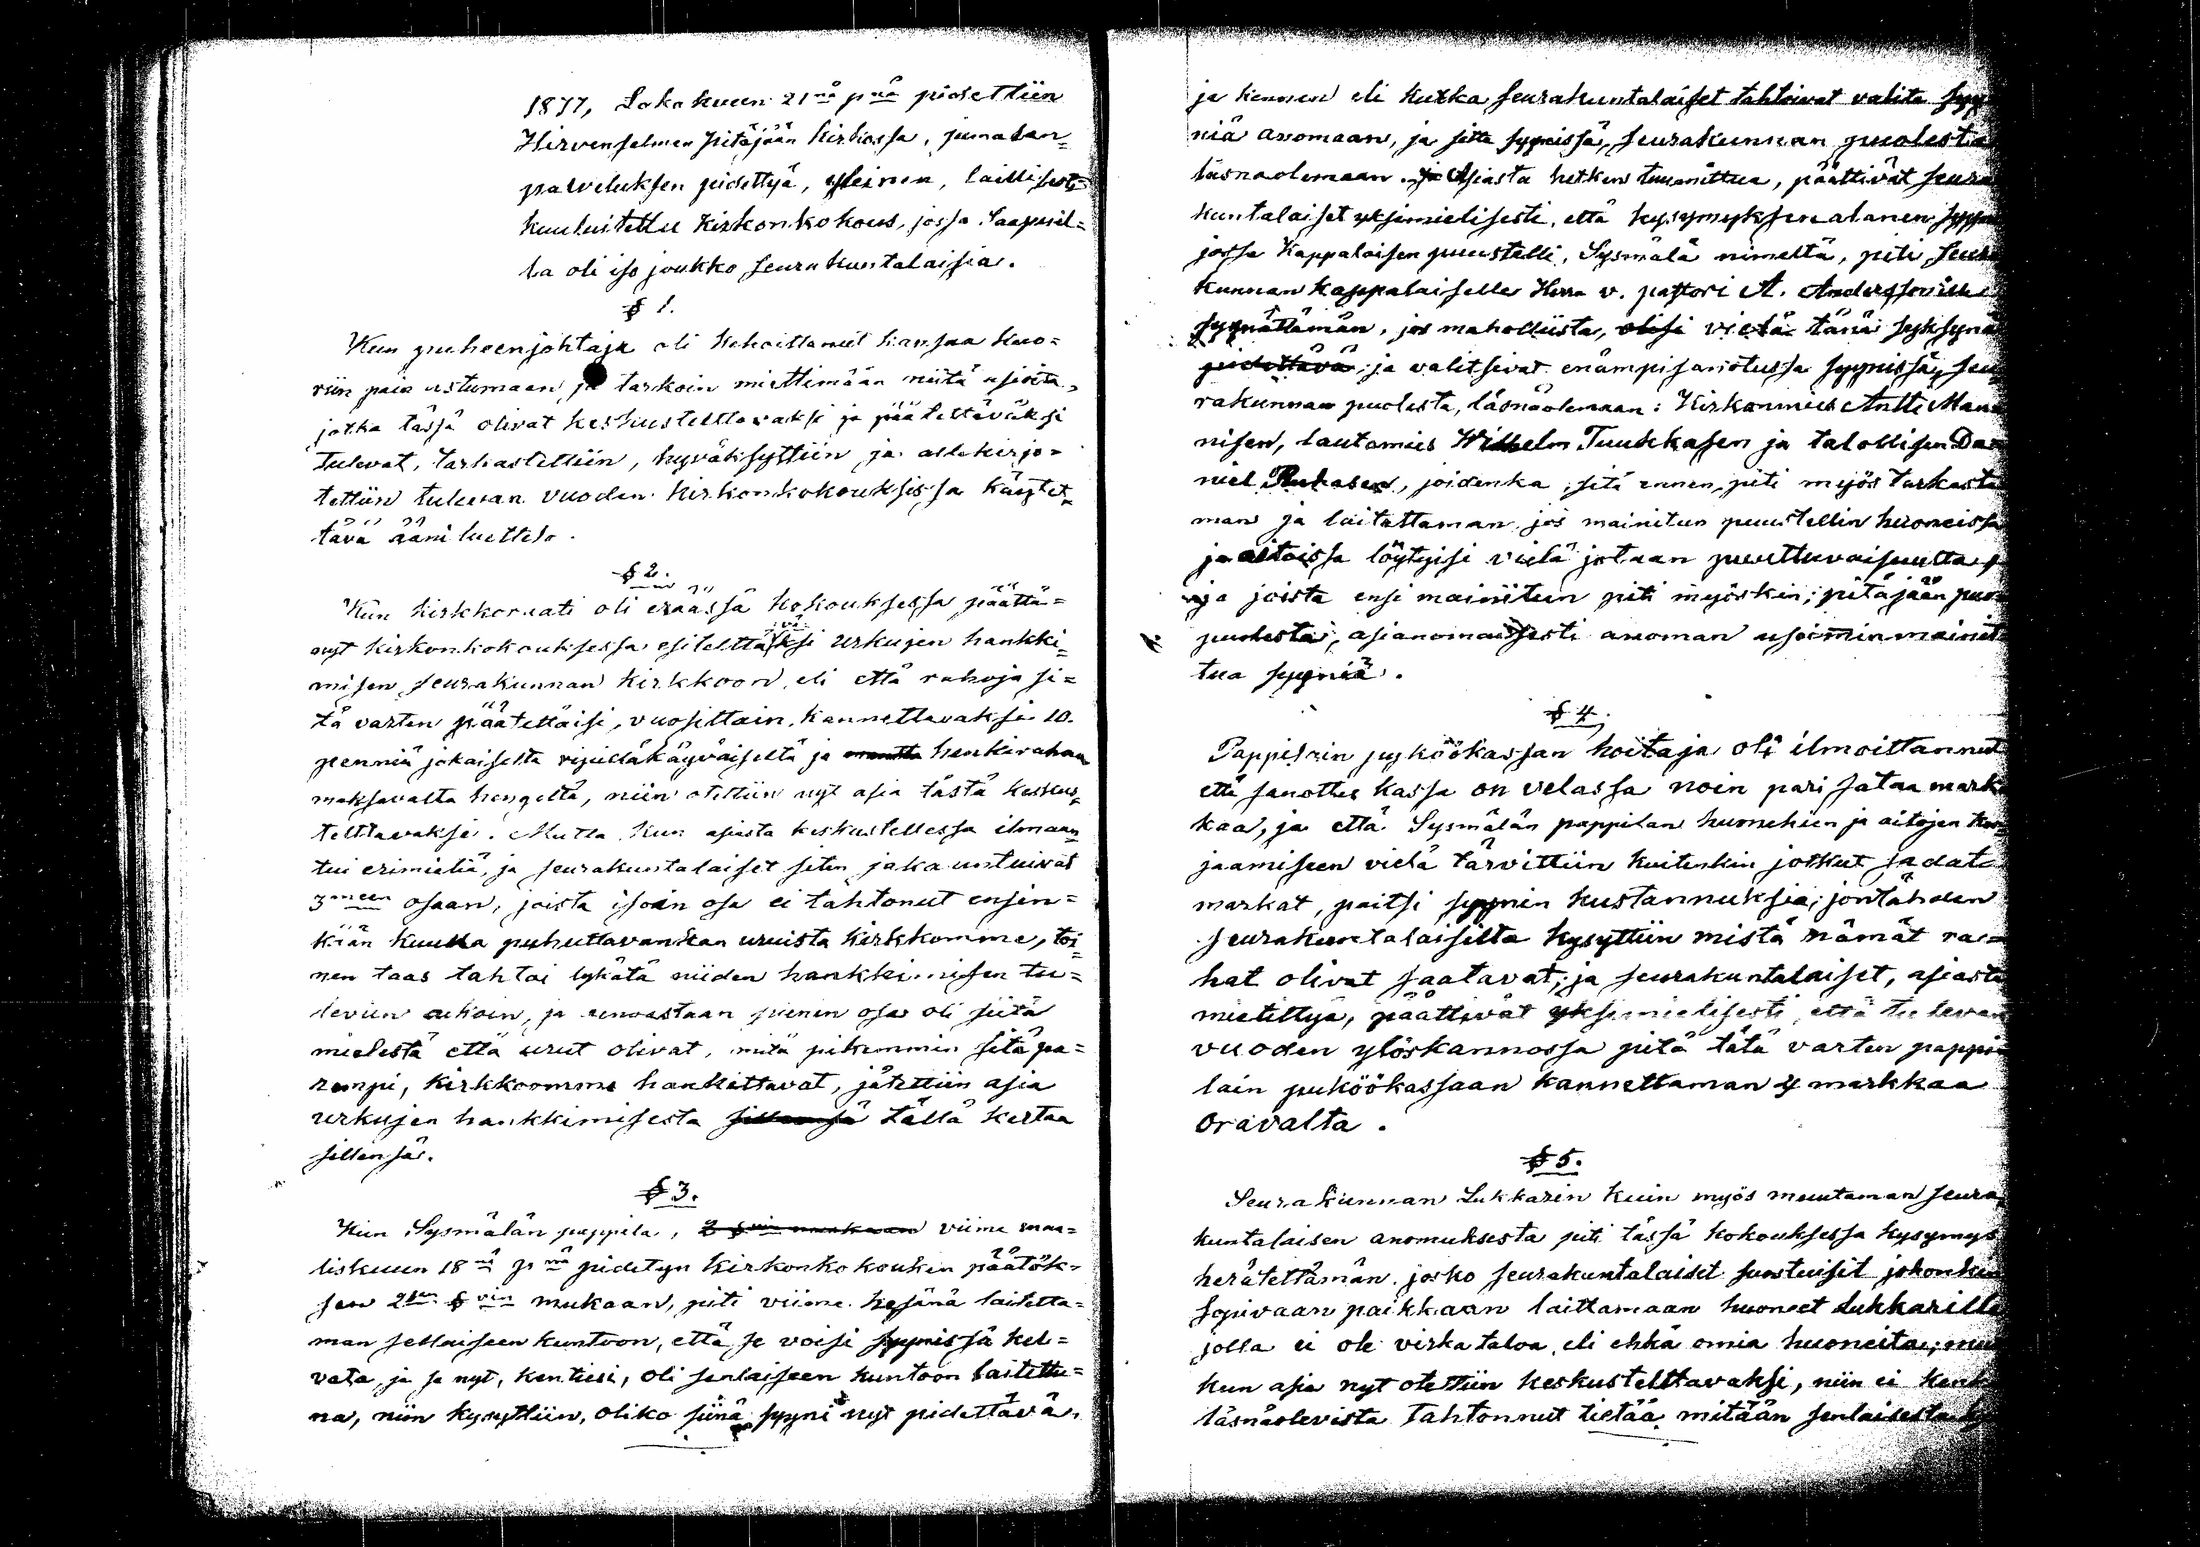 1877, Loka kuun 21nä pnä pidettiin
Hirvensalmen Pitäjään kirkossa, jumalan-
palveluksen pidettyä, yleinen, laillisesti
kuuluitettu Kirkonkokous, jossa saapuvil-
la oli iso joukko seurakuntalaisia.
§ 1.
Kun puheenjohtaja oli kehoittanut kansaa
riin astumaan ja tarkoin miettimään niitä asioita,
jotka tässä olivat keskusteltavaksi ja päätettäväksi
tulevat, tarkastettiin, hyväksyttiin ja allekirjo-
tettiin tulevan vuoden kirkonkokouksissa käytet-
tävä ääni luettelo.
§ 2.
Kun kirkkoraati oli eräässä kokouksessa päättä-
nyt kirkonkokouksessa esiteltäväksi urkujen hankki-
misen seurakunnan kirkkoon, eli että rahoja si-
tä varten päätettäisi, vuosittain, kannettavaksi 10.
penniä jokaiselta ripilläkäyväiseltä ja henkirahaa
maksavalta hengeltä, niin otettiin nyt asia tästä keskus-
telttavaksi. Mutta kun asiasta keskustellessa ilmaan-
tui erimieliä, ja seurakuntalaiset siten jakauntuivat
3meen osaan, joista isoin osa ei tahtonut ensin-
kään kuulla puhuttavankaan uruista kirkkomme, toi-
nen taas tahtoi lykätä niiden hankkimisen tu-
leviin aikoin, ja ainoastaan pienin osa oli siitä
mielestä että urut olivat, mitä pikemmin sitä pa-
rempi, kirkkoomme hankittavat, jätettiin asia
urkujen hankkimisesta sillensä tällä kertaa
sillensä.
§ 3.
Kun Sysmälän pappila, viime maa-
liskuun 18nä pnä pidetyn kirkonkokouksen päätök-
sen 2sen §vin mukaan, piti viime kesänä laitetta-
man sellaiseen kuntoon, että se voisi syynissä kel-
vata, ja se nyt, kentiesi, oli senlaiseen kuntoon laitettu-
na, niin kysyttiin, oliko siinä syyni nyt pidettävä,
ja kennen eli kutka seurakuntalaiset tahtoivat valita syy
niä anomaan, ja sitte syynissä, seurakunnan puolesta
läsnäolemaan. Asiasta hetken tuumittua, päättivät seura
kuntalaiset yksimielisesti, että kysymyksenalanen syyni
jossa Kappalaisen puustelli, Sysmälä nimeltä, piti seura
kunnan kappalaiselle Herra v. pastori A. Anderssonille
syynättämän, jos mahollista, olisi vielä tänä syksynä
pidettävä; ja valitsivat enämpi sanotussa syynissä, seu
rakunnan puolesta, läsnäolemaan: Kirkonmies Antti Man
nisen, lautamies Wilhelm Tuukkasen ja talollisen Da
niel, joidenka, sitä ennen, piti myös tarkasta
man ja laitattaman, jos mainitun puustellin huoneissa
ja aitoissa löytyisi vielä jotaan puuttuvaisuutta,
ja joista ensi mainitun piti myöskin, pitäjään
puolesta, asianomaisesti anoman useimmin mainit
tua syyniä.
§ 4.
Pappilain pyköökassan hoitaja oli ilmoittannut
että sanottu kassa on velassa noin pari sataa mark
kaa, ja että Sysmälän pappilan huonehien ja aitojen kor
jaamiseen vielä tarvittiin kuitenkin jotkut sadat
markat, paitsi syynin kustannuksia; jontähden
seurakuntalaisilta kysyttiin mistä nämät ra-
hat olivat saatavat; ja seurakuntalaiset, asiasta
mietittyä, päättivät yksimielisesti, että tulevan
vuoden ylöskannossa pitä tätä varten pappi
lain puköökassaan kannettaman markkaa
oravalta.
§ 5.
Seurakunnan Lukkarin kuin myös muutaman seura
kuntalaisen anomuksesta piti tässä kokouksessa kysymys
herätettämän, josko seurakuntalaiset suostuisit johonkin
sopivaan paikkaan laittamaan huoneet Lukkarille
jolla ei ole virka taloa, eli ehkä omia huoneita;
kun asia nyt otettiin keskustelttavaksi, niin ei kenk
läsnäolevista tahtonnut tietää mitään senlaisesta